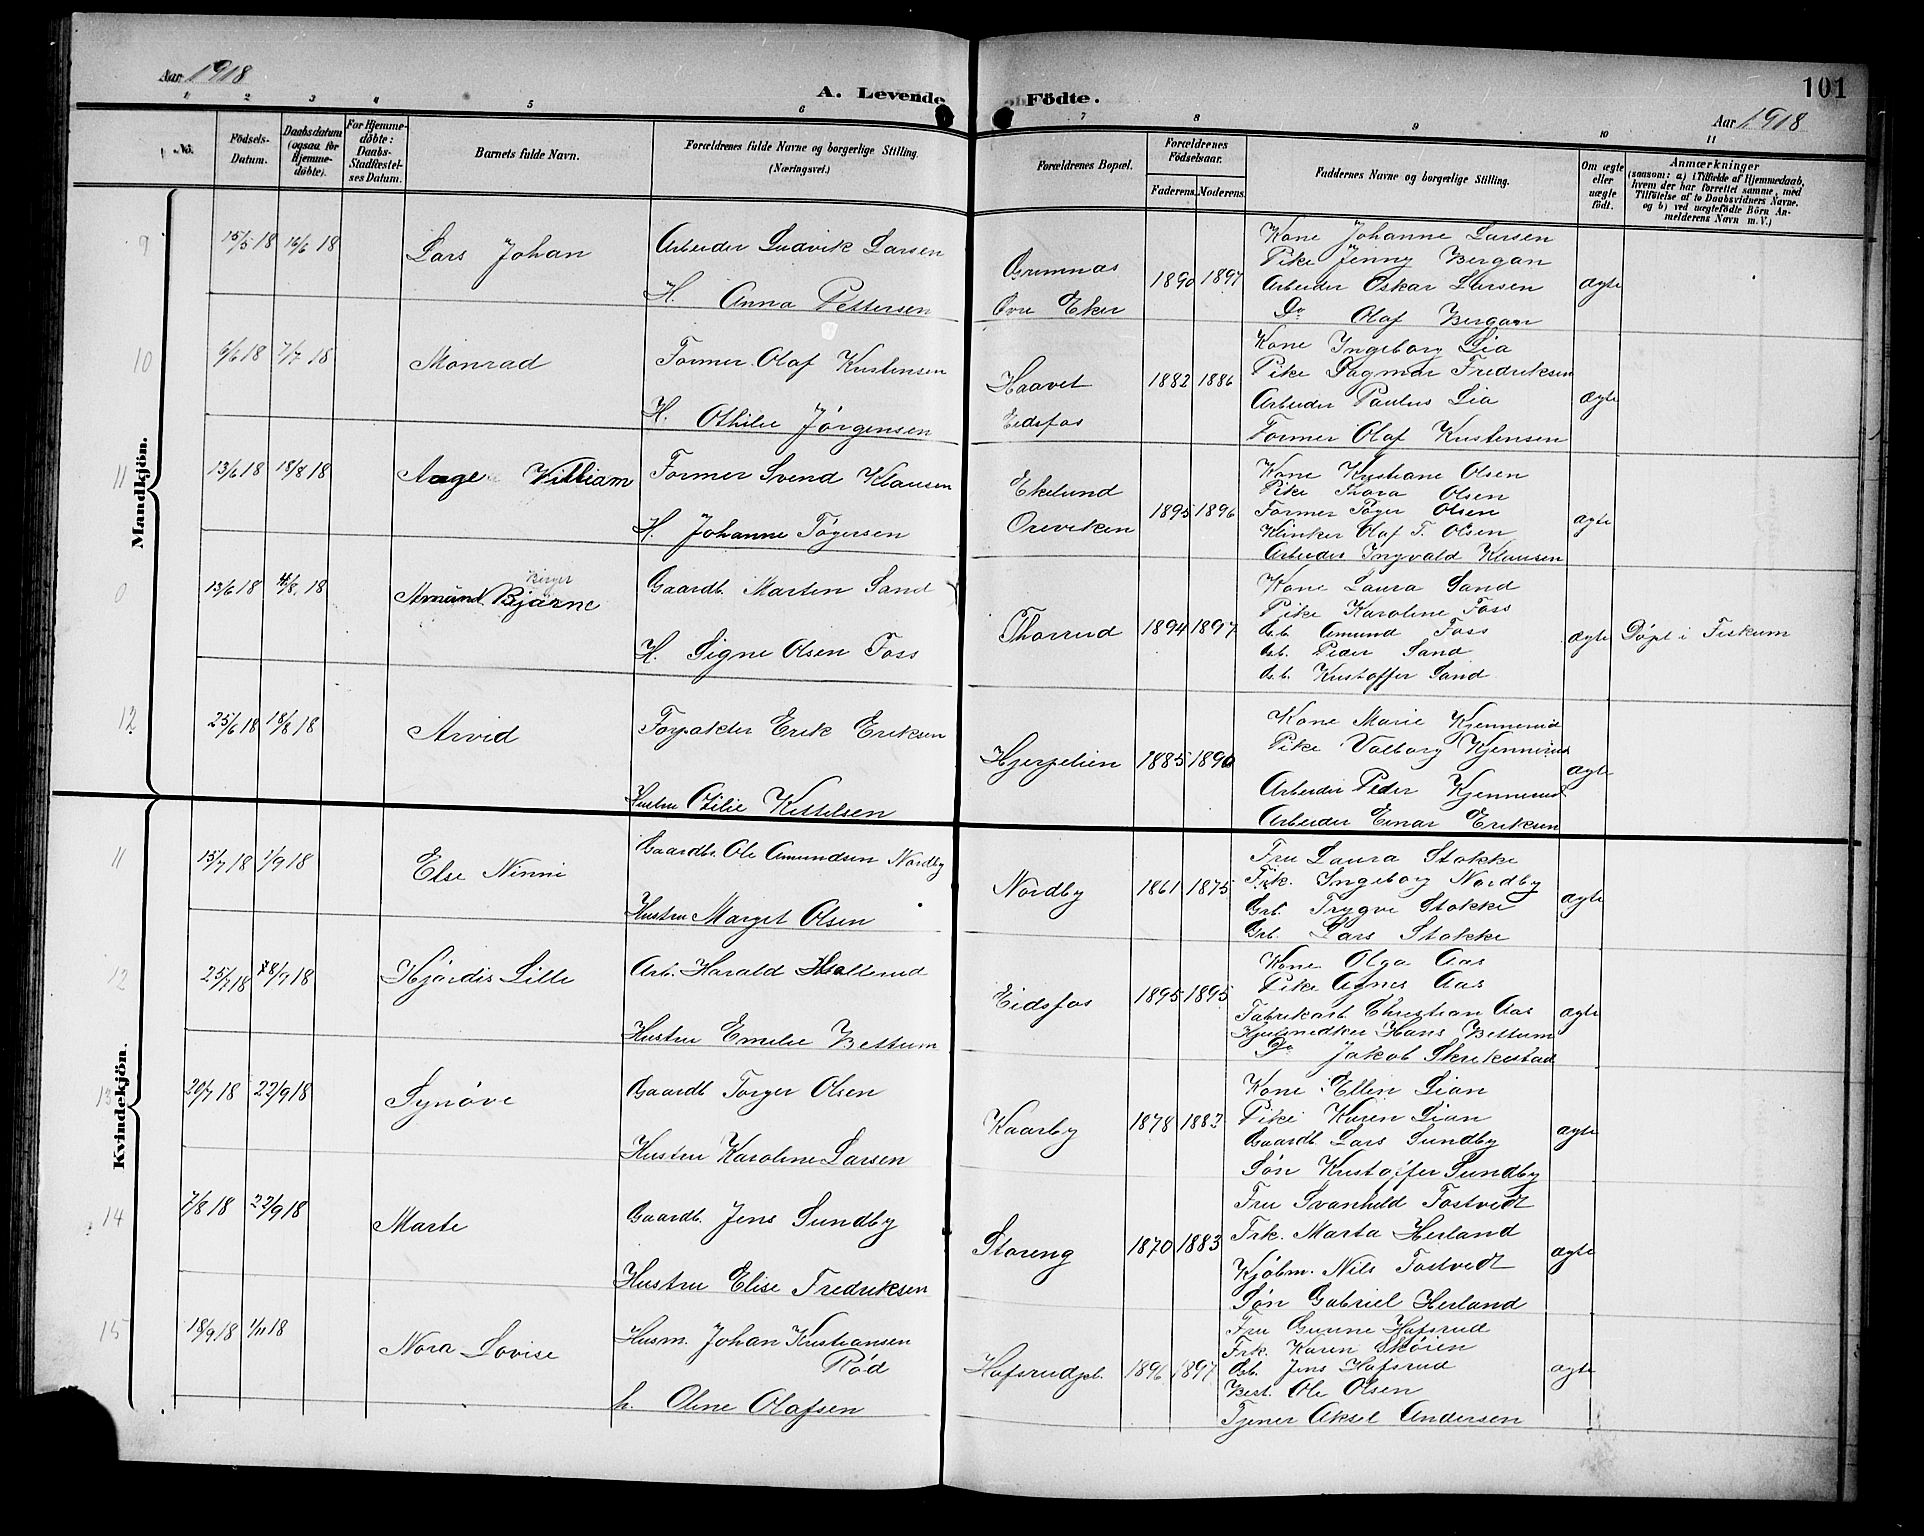 Aar 1918
A. Levende Födte.
101
Aar 1918
1 2 3 4 5 6 7 8 9 10 11
No.
Födsels-Datum.
Daabsdatum (ogsaa for Hjemme-döbte).
For Hjemme-döbte: Daabs-Stadfæstel-ses Datum.
Barnets fulde Navn.
Forældrenes fulde Navne og borgerlige Stilling. (Næringsvei.)
Forældrenes Bopæl.
Forældrenes Födselsaar.
Faderens. Moderens.
Faddernes Navne og borgerlige Stilling.
Om ægte eller uægte födt.
Anmærkninger
(saasom: a) i Tilfælde af Hjemmedaab,
hvem der har forrettet samme, med
Tilföielse af to Daabsvidners Navne.
og b) ved uægtefödte Börn An-
melderens Navn m.V.)
Mandkjön.
9 15/5 18 16/6 18 Lars Johan
Arbeider Ludvik Larsen
H. Anna Pettersen
Grumnas
Øvre Eker
1890 1897
Kone Johanne Larsen
Pike Jenny Bergan
Arbeider Oskar Larsen
Do Olaf Bergan
ægte
10 6/6 18 7/7 18 Monrad
Former Olaf Kristensen
H. Othilie Jørgensen
Haavet
Eidsfos
1882 1886
Kone Ingeborg Lia
Pike Dagmar Fredriksen
Arbeider Paulus Lia
Former Olaf Kristensen
ægte
11 13/6 18 18/8 18 Aage William
Former Svend Klausen
H. Johanne Tøgersen
Ekelund
Oreviken
1895 1896
Kone Kristiane Olsen
Pike Thora Olsen
Former Tøger Olsen
Klinker Olaf T. Olsen
Arbeider Ingvald Klausen
ægte
0 13/6 18 4/8 18 Amund Birger Bjarne
Gaardb. Marten Sand
H. Signe Olsen Foss
Thorrud
1894 1897
Kone Laura Sand
Pike Karoline Foss
Gb. Amund Foss
Gb. Peder Sand
Gb. Kristoffer Sand
ægte
Døpt i Fiskum
12 25/6 18 18/8 18 Arvid
Forpakter Erik Eriksen
Hustru Otilie Kittelsen
Hjerpelien
1885 1890
Kone Marie Kjennerud
Pike Valborg Kjennerud
Arbeider Peder Kjennerud
Arbeider Einar Eriksen
ægte
Kvindekjön.
11 15/7 18 1/9 18 Else Ninni
Gaardbr. Ole Amundsen Nordby
Hustru Marget Olsen
Nordby
1861 1875
Fru Laura Stokke
Frk. Ingeborg Nordby
Grb. Trygve Stokke
Grb. Lars Stokke
ægte
12 25/7 18 8/9 18 Hjørdis Lille
Arb. Harald Hollerud
Hustru Emilie Bettum
Eidsfos
1895 1895
Kone Olga Aas
Pike Agnes Aas
Fabrikarb. Christian Aas
Hjulmedker Hans Bettum
Do Jakob Skrikestad
ægte
13 20/7 18 22/9 18 Synøve
Gaardb. Torger Olsen
Hustru Karoline Larsen
Kaarby
1878 1883
Kone Ellen Lian
Pike Karen Lian
Gaardb. Lars Sundby
Søn Kristoffer Sundby
ægte
14 7/8 18 22/9 18 Marte
Gaardb. Jens Sundby
Hustru Elise Fredriksen
Storeng
1870 1883
Fru Svanhild Tostvedt
Frk. Marta Herland
Kjøbm. Nils Tostvedt
Søn Gabriel Herland
ægte
15 18/9 18 1/11 18 Nora Lovise
Husm. Johan Kristiansen
Rød
h. Oline Olafsen
Hafsrudpl.
1896 1897
Fru Gunne Hafsrud
Frk. Karen Skøien
Gb. Jens Hafsrud
Best. Ole Olsen
Tjener Aksel Andersen
ægte